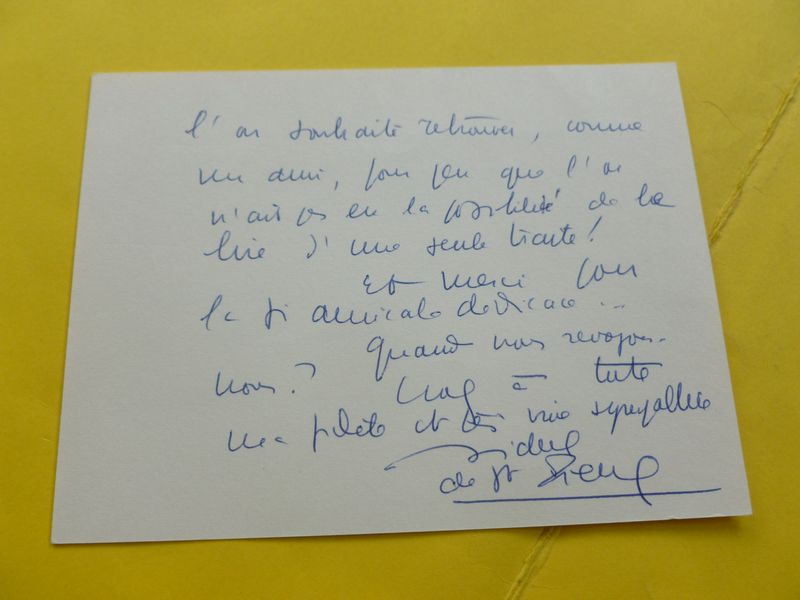 l'on souhaite retrouver, comme
un ami, pour peu que l'on
n'ait pas eu la possibilité de le
lire d'une seule traite!
Et merci pour
la si amicale dédicace...
Quand nous revoyons-
nous? à toute
ma et très vive sympathie
de St Pierre